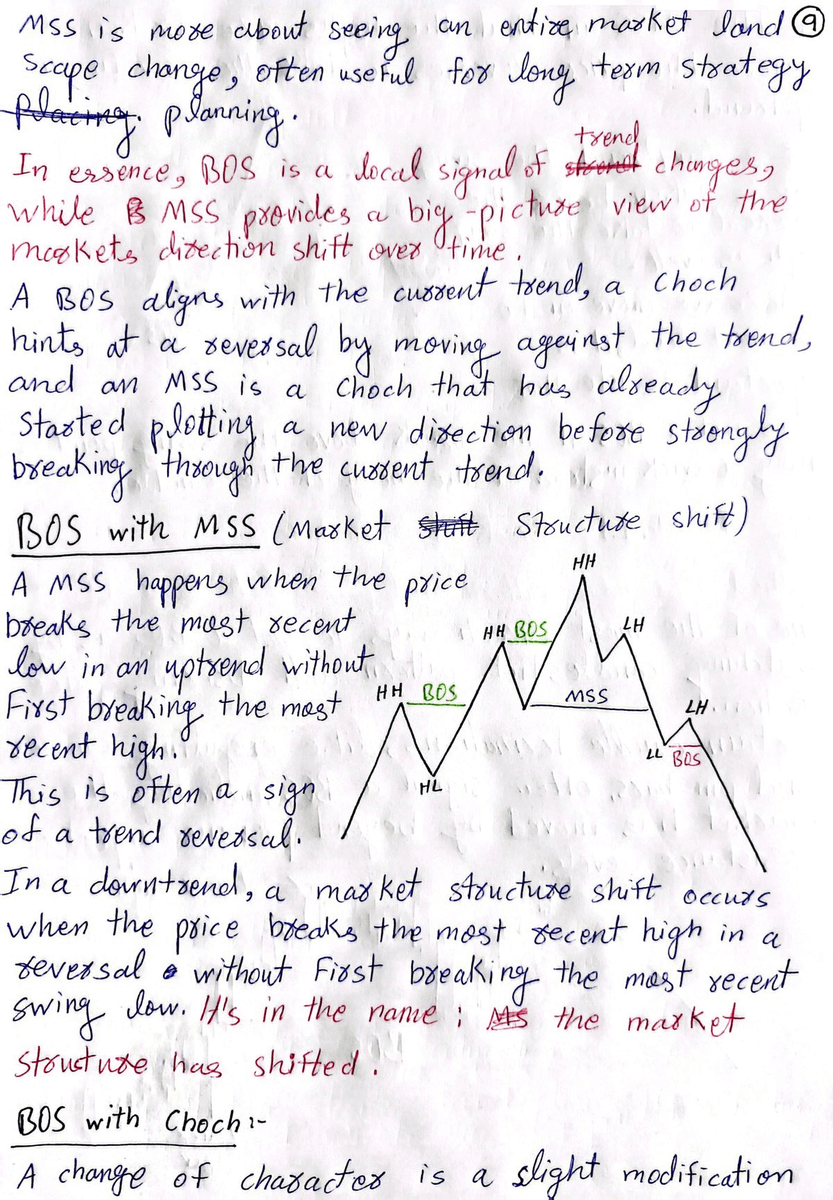 MSS is more about seeing an entire market land 9
scape change, often useful for long term strategy
placing. planning.
trend
In essence, BOS is a local signal of changes,
while MSS provides a big-picture view of the
markets direction shift over time.
A BOS aligns with the current trend, a Choch
hints at a reversal by moving against the trend,
and an MSS is a Choch that has already
Started plotting a new direction before strongly
breaking through the current trend.
BOS with MSS (Market shift Structure shift)
A MSS happens when the price
breaks the most recent
low in an uptrend without
First breaking the most
recent high.
This is often a sign
of a trend reversal.
HH
HH BOS
LH
HH BOS
MSS
LH
LL BOS
HL
In a downtrend, a market structure shift occurs
when the price breaks the most recent high in a
reversal without First breaking the most recent
swing low. It's in the name ; MS the market
Structure has shifted.
BOS with Choch :-
A change of character is a slight modification